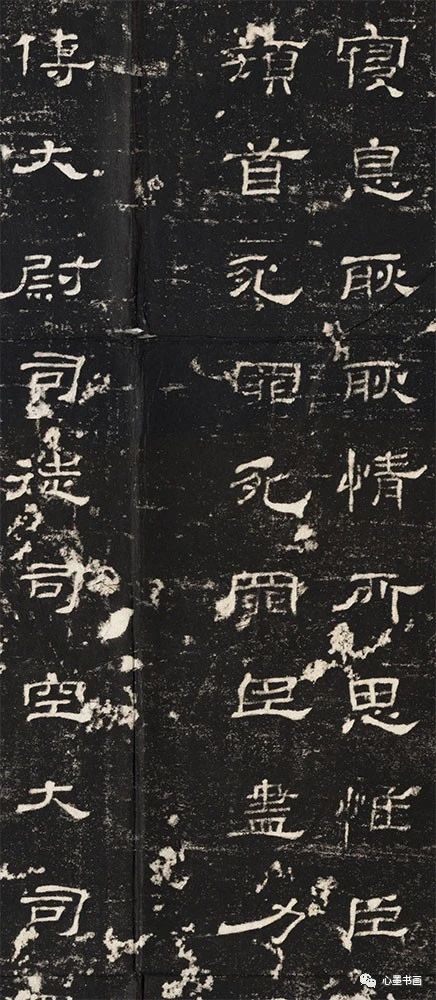 寑息耿耿情所思惟臣
頓首死罪死罪臣盡力
傅大尉司徒司空大司
心墨书画